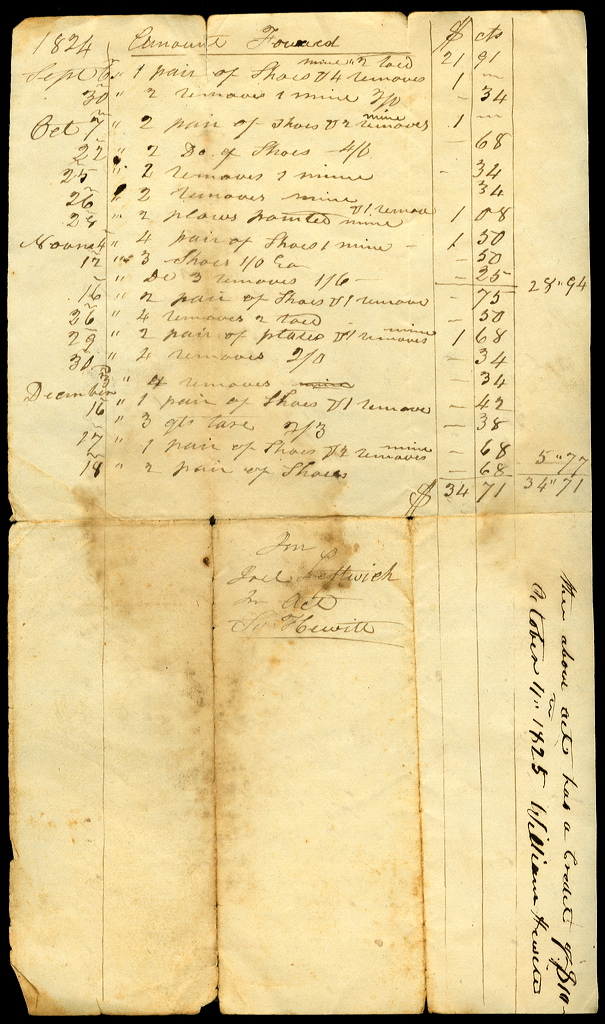 1824 Amount Forward $ cts
21 91
Sept 6 " 1 pair of Shoes & 4 removes mine " 2 toed 1 —
30 " 2 removes 1 mine 2/0 — 34
Oct 7 " 2 pair of Shoes & 2 removes mine 1 —
22 " 2 Do. of Shoes — 4/6 — 68
25 " 2 removes 1 mine — 34
26 " 2 removes mine 34
28 " 2 plows pointed & 1 remove mine 1 08
4 " 4 pair of Shoes 1 mine — 1 50
12 " 3 Shoes 1/0 Ea — 50
" Do 3 removes 1/6 — — 25 28 " 94
16 " 2 pair of Shoes & 1 remove — 75
26 " 4 removes 2 toed — 50
29 " 2 pair of plates & 1 removes mine 1 68
30 " 4 removes 2/0 — 34
December " 4 removes — 34
16 " 1 pair of Shoes & 1 remove — 42
" 3 qts 2/3 — 38
17 " 1 pair of Shoes & 2 removes mine — 68
18 " 2 pair of Shoes — 68 5 " 77
$ 34 71 34 " 71
Joel Leftwich
In Act
To Hewitt
The above act has a Credit of $10
October 4th 1825 William Hewitt